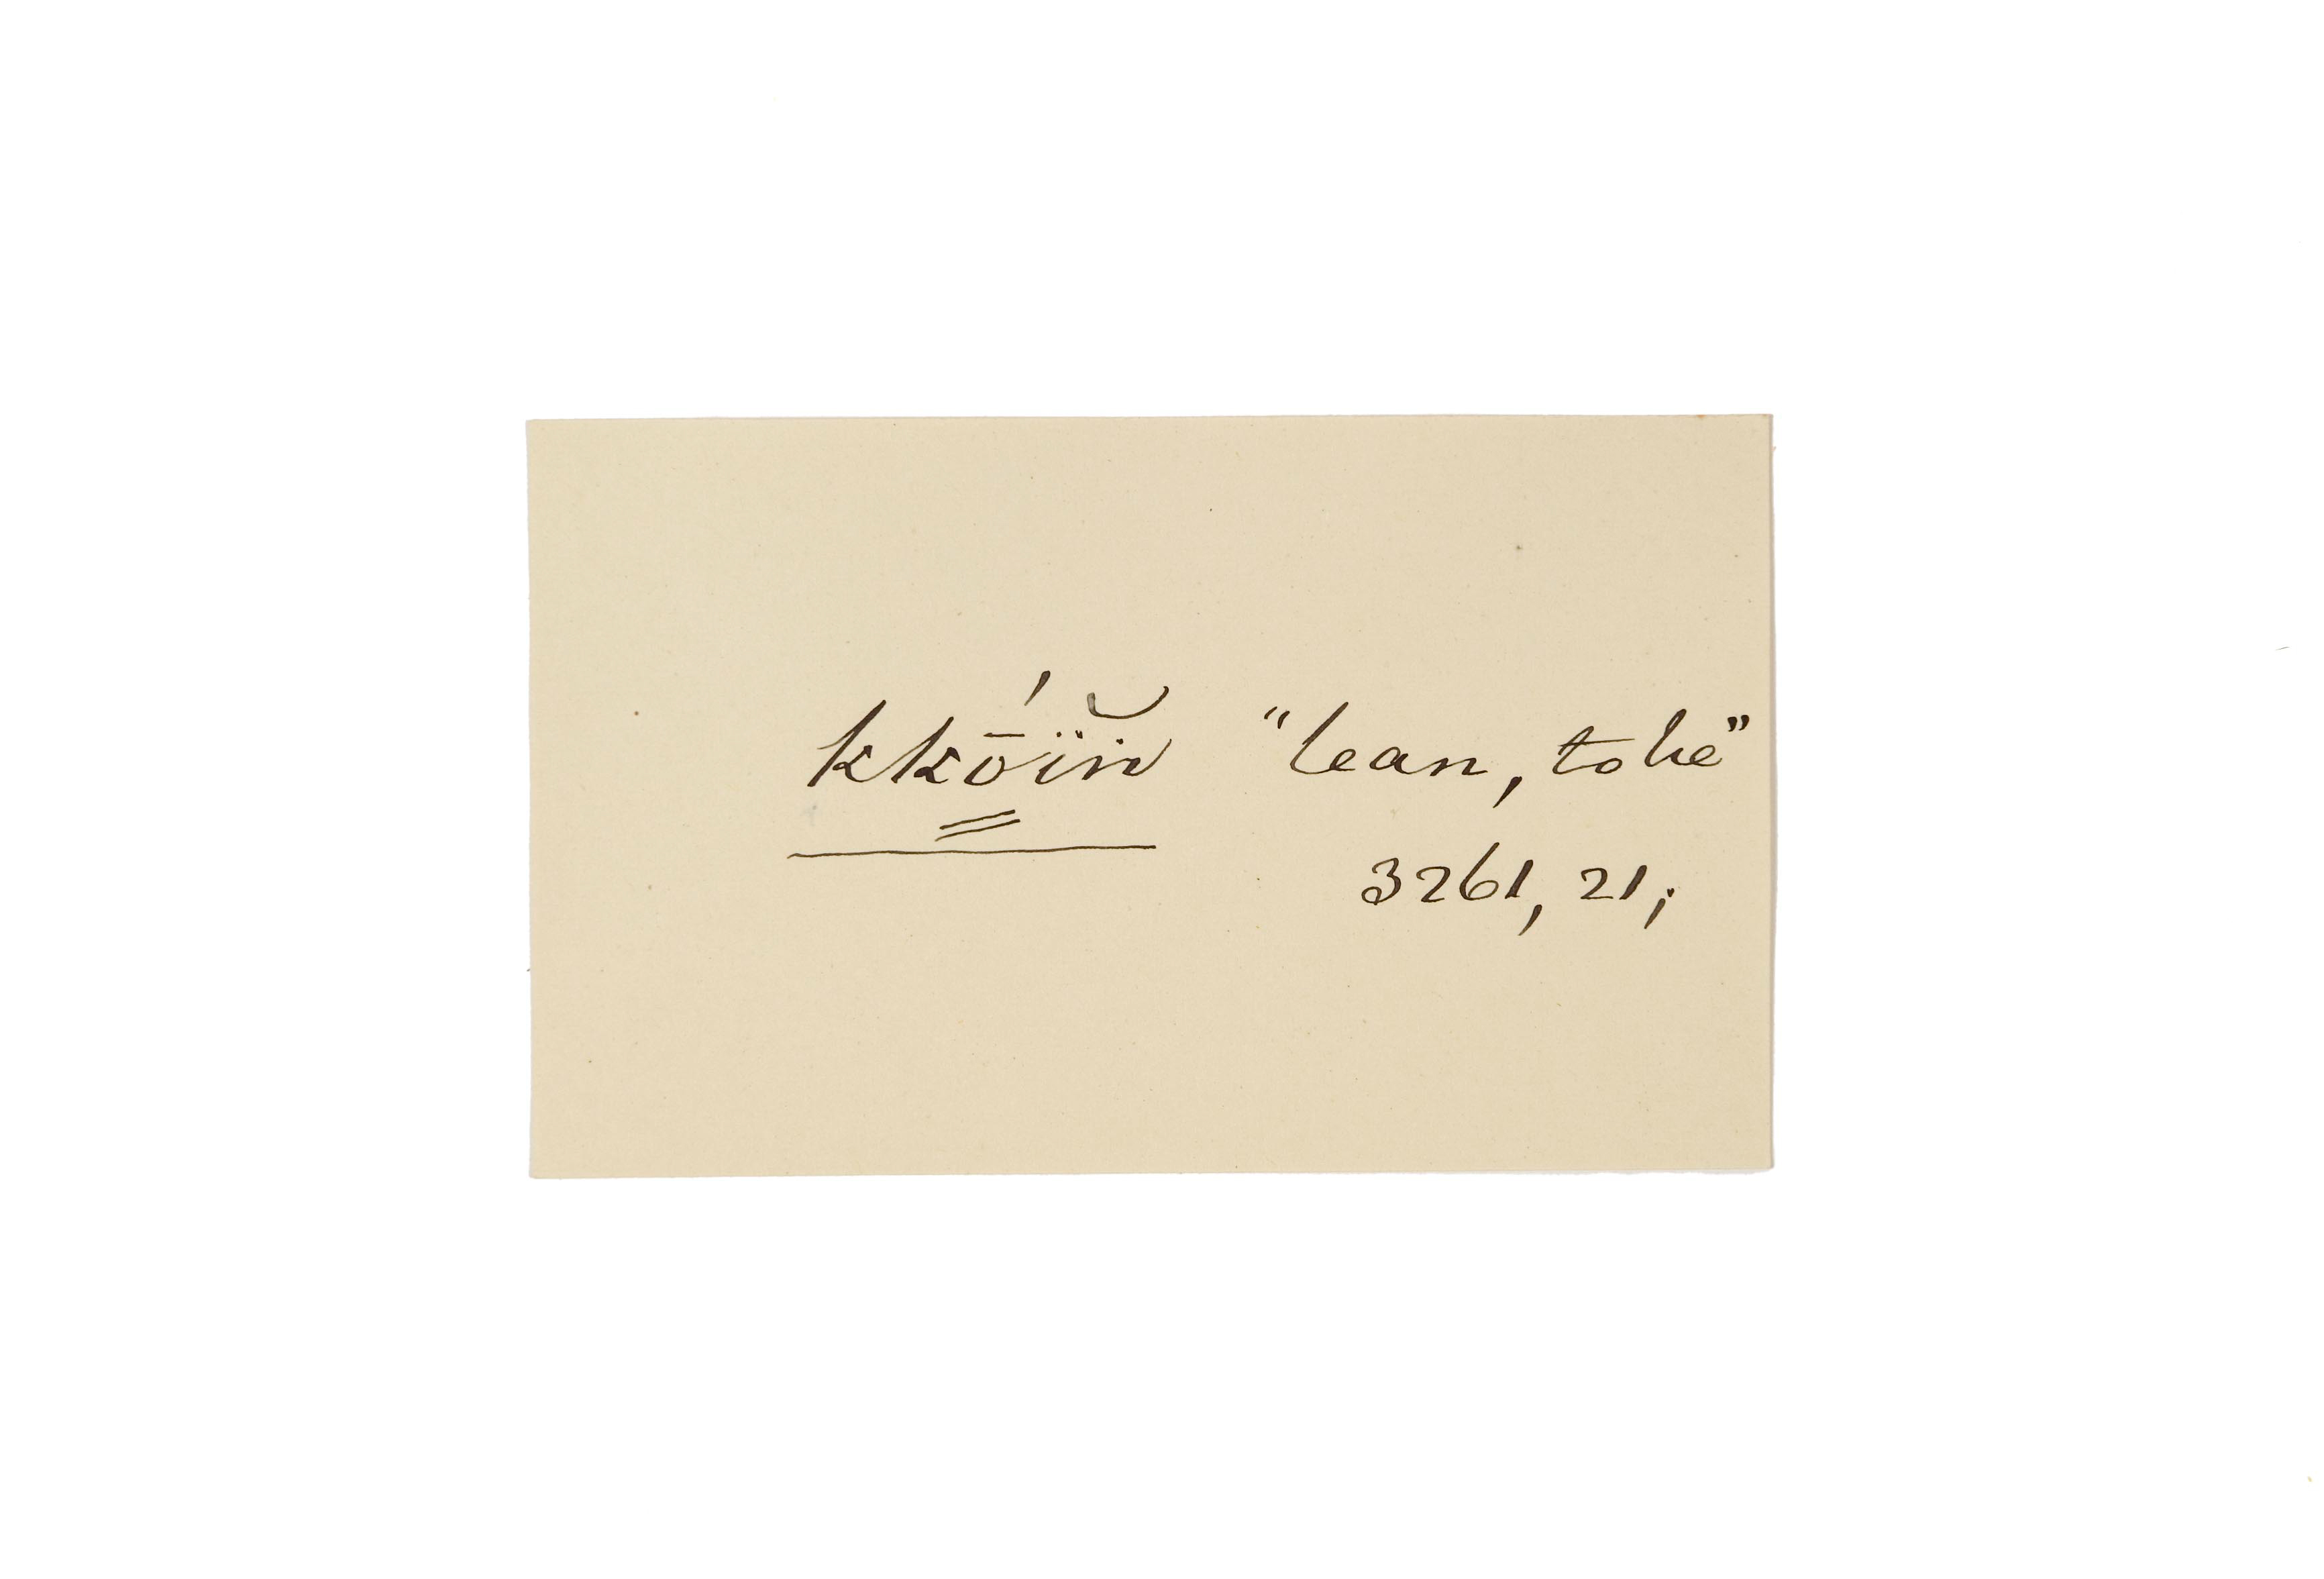 kkṓïn̆ "lean, to be"
3261, 21;